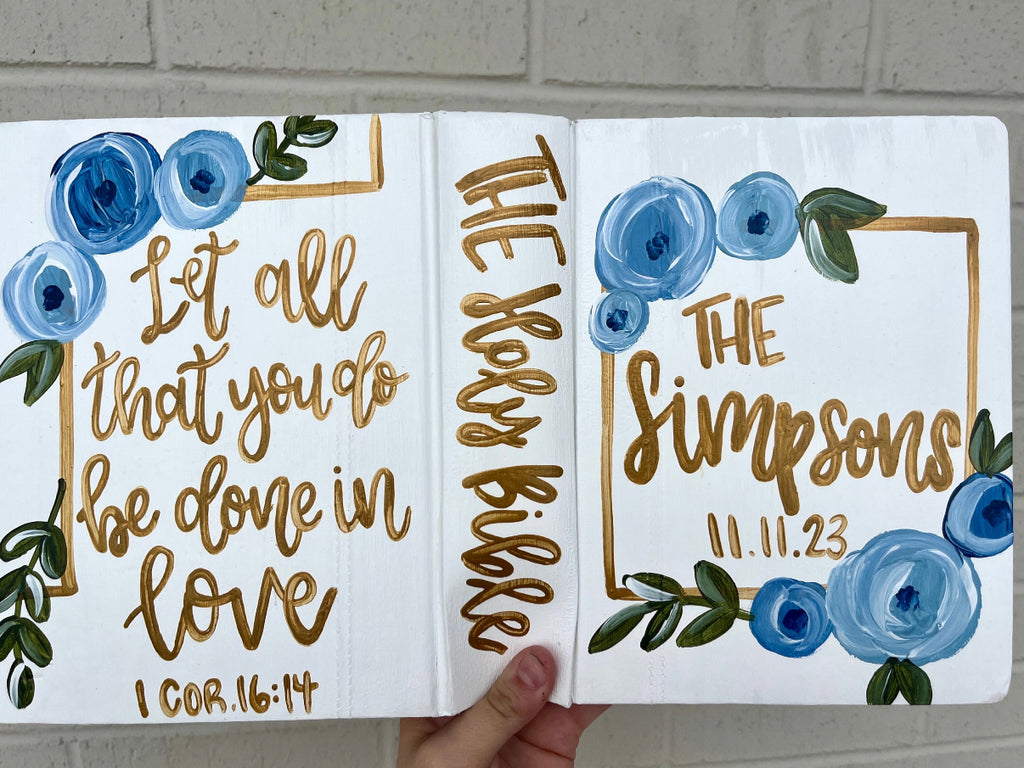 Let all
that you do
be done in
love
1 COR. 16:14
THE Holy Bible
THE
Simpsons
11.11.23